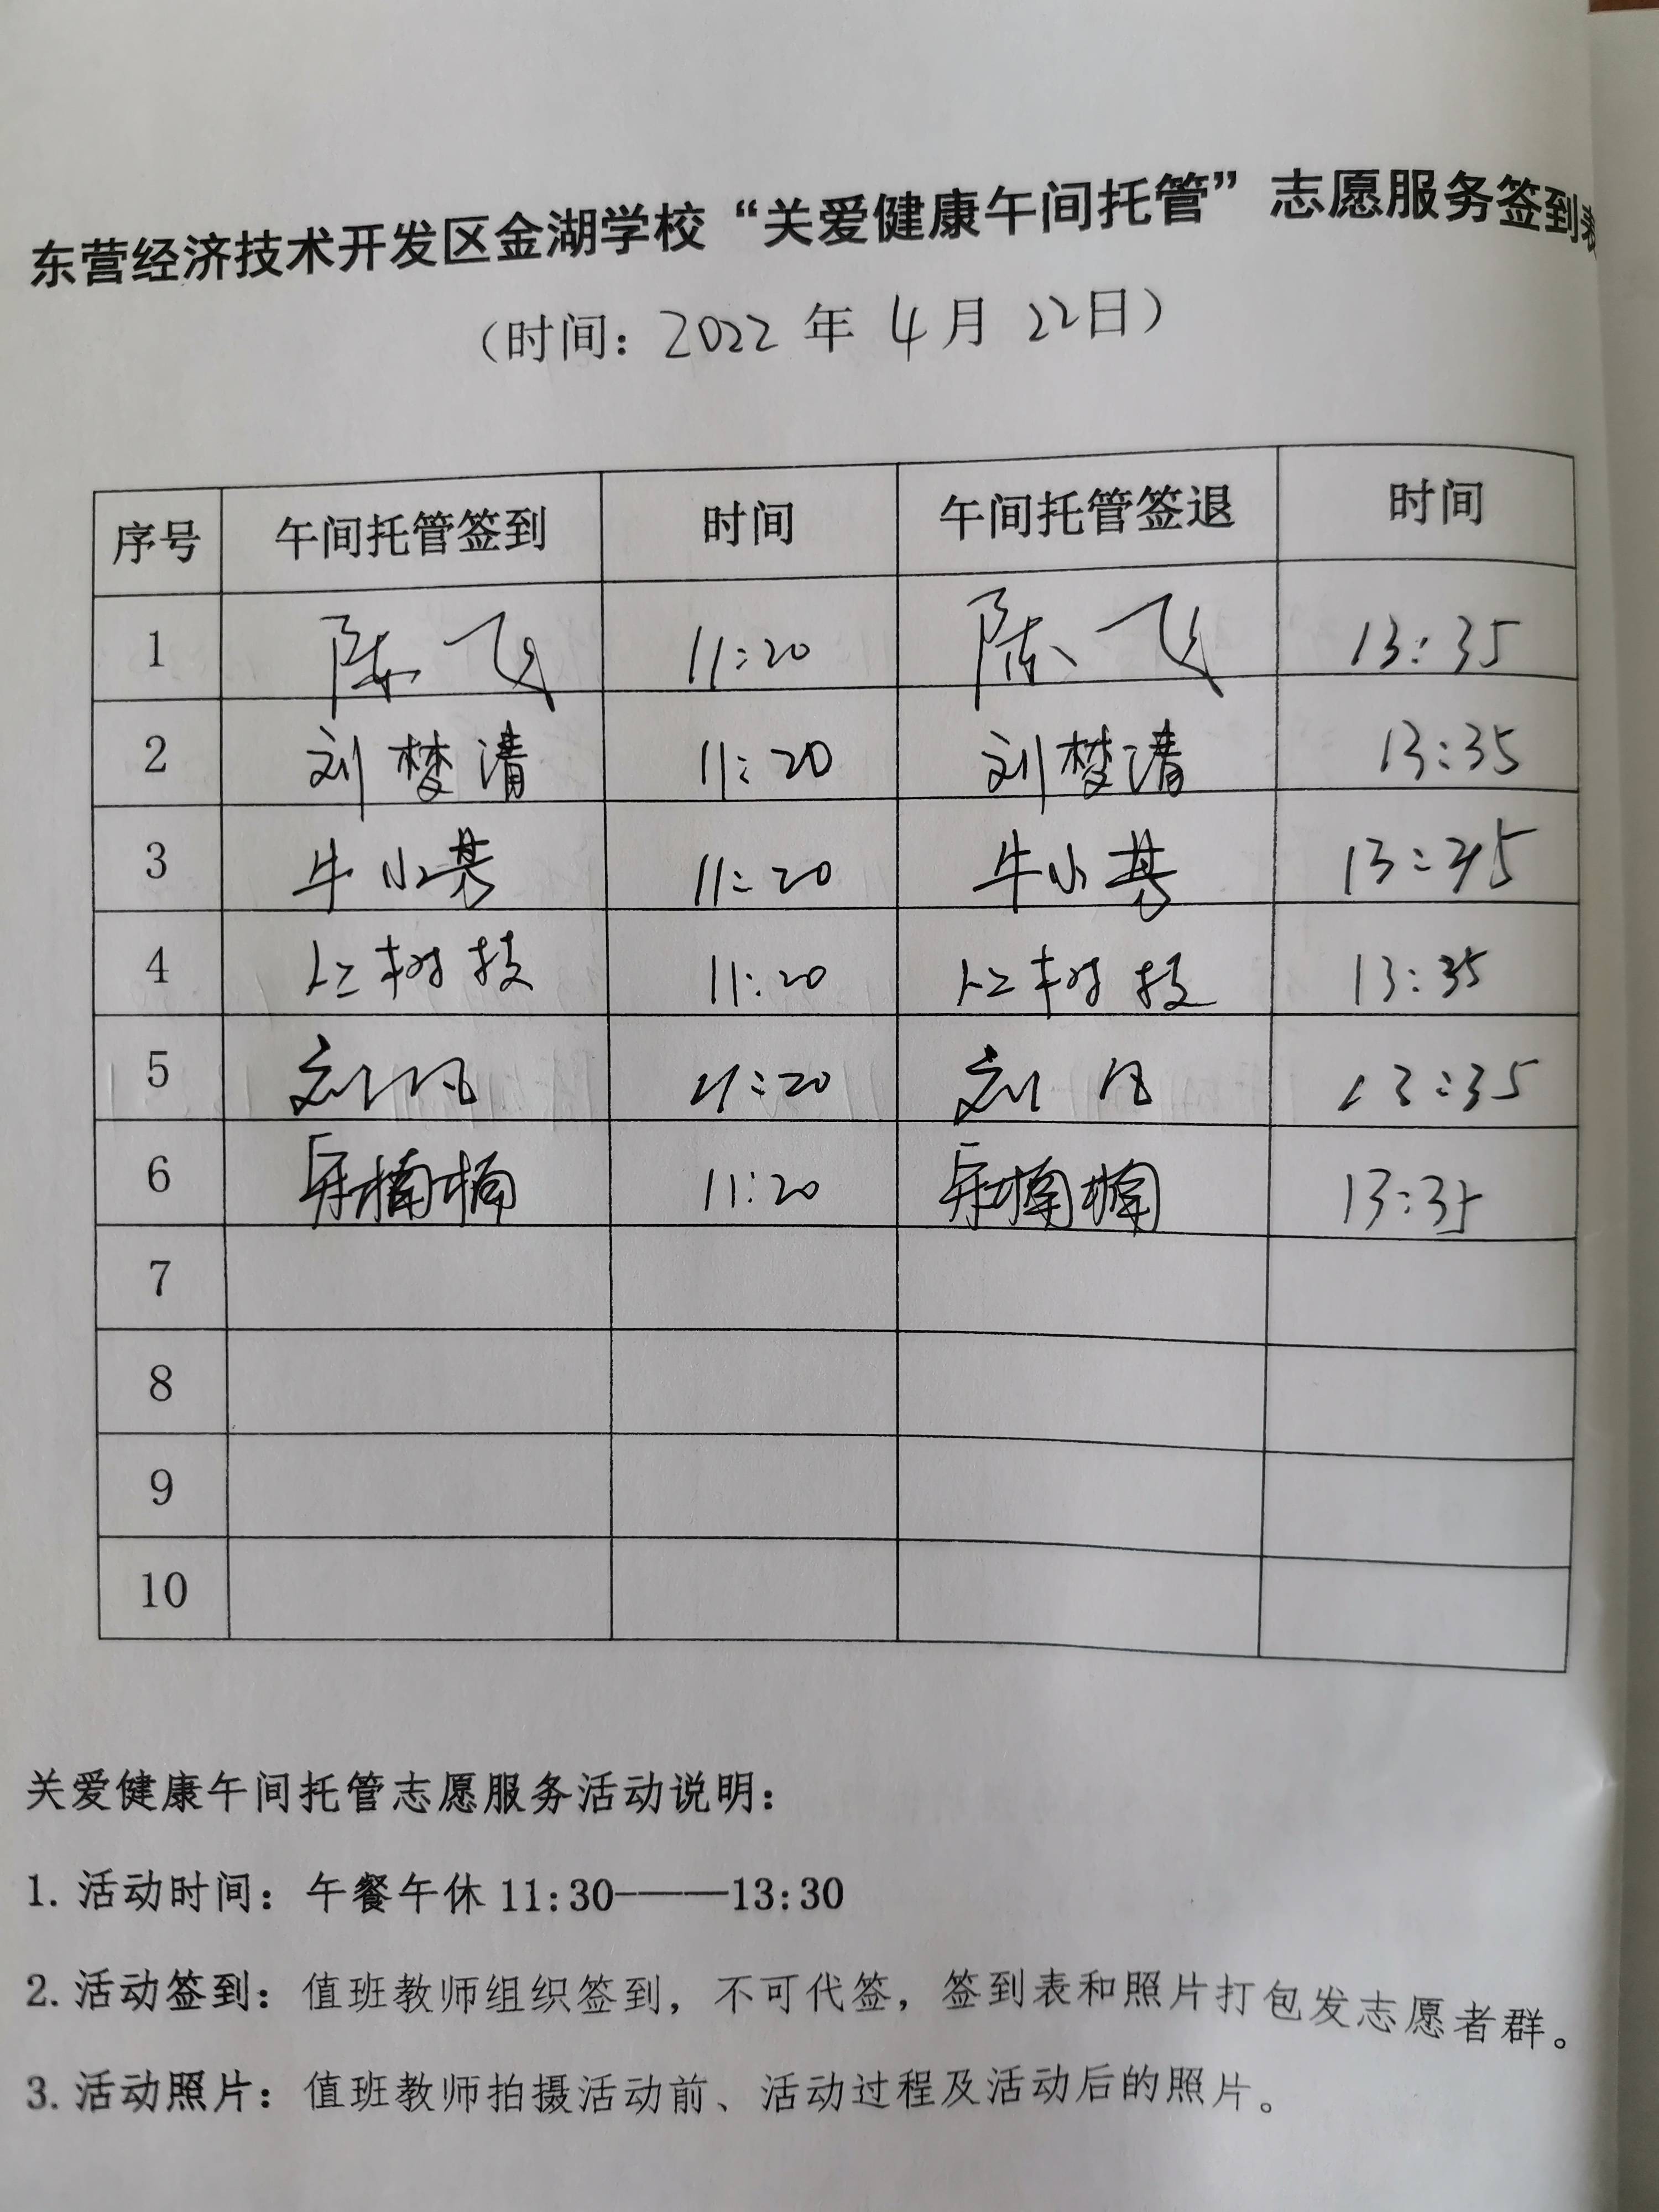 东营经济技术开发区金湖学校“关爱健康午间托管”志愿服务签到表
（时间：2022 年 4 月 22日）
序号 午间托管签到 时间 午间托管签退 时间
1 陈飞 11:20 陈飞 13:35
2 刘梦清 11:20 刘梦清 13:35
3 牛小 11:20 牛小 13:35
4 树枝 11:20 树枝 13:35
5 刘凡 11:20 刘凡 13:35
6 楠楠 11:20 楠楠 13:35
7
8
9
10
关爱健康午间托管志愿服务活动说明：
1. 活动时间：午餐午休 11:30———13:30
2. 活动签到：值班教师组织签到，不可代签，签到表和照片打包发志愿者群。
3. 活动照片：值班教师拍摄活动前、活动过程及活动后的照片。